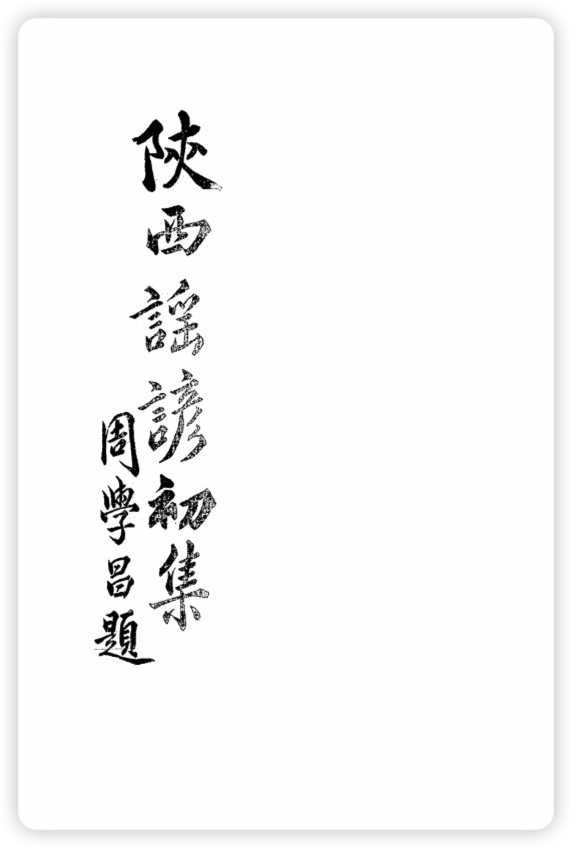 陝西謡諺初集
周學昌題